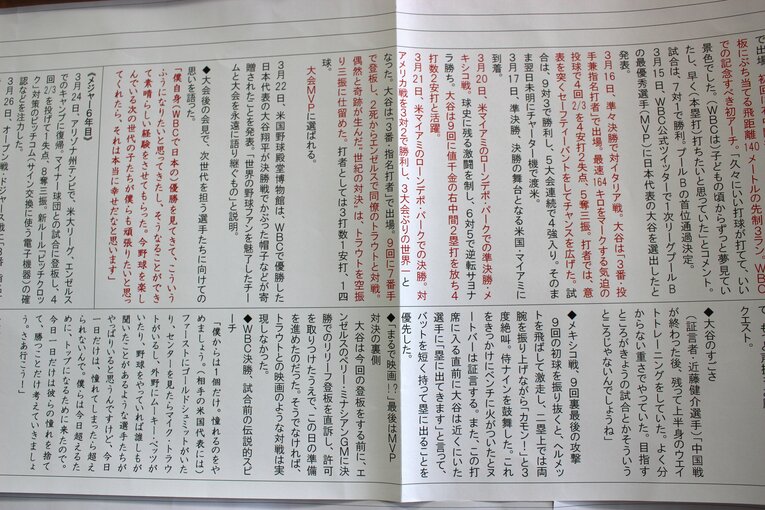 で出場。初回
板にぶち当てる飛距離140メートルの先制3ラン。WBC
での記念すべき初アーチ。「人々にいい打球が打てて、いい
景色でした。（WBCは）子どもの頃からずっと夢見てい
たし、早く（本塁打）打ちたいと思っていた」とコメント。
試合は、7対1で勝利。プールBの首位通過決定。
3月15日、WBC公式ツイッターで1次リーグプールB
の最優秀選手（MVP）に日本代表の大谷を選出したと
発表。
3月16日、準々決勝で対イタリア戦。大谷は「3番・投
手兼指名打者」で出場。最速164キロをマークする気迫の
投球で4回2/3を4安打2失点、5奪三振。打者では、意
表を突くセーフティーバントをしてチャンスを広げた。試
合は、9対3で勝利し、5大会連続で4強入り。そのま
ま翌日未明にチャーター機で渡米。
3月17日、準決勝、決勝の舞台となる米国・マイアミに
到着。
3月20日、米マイアミのローンデポ・パークでの準決勝・メ
キシコ戦。球史に残る激闘を制し、6対5で逆転サヨナ
ラ勝ち。大谷は9回に値千金の右中間2塁打を放ち4
打数2安打と活躍。
3月21日、米マイアミのローンデポ・パークでの決勝。対
アメリカ戦を3対2で勝利し、3大会ぶりの世界一と
なった。大谷は「3番・指名打者」で出場。9回に7番手
で登板し、2死からエンゼルスで同僚のトラウトと対戦。
偶然と奇跡が生んだ〝世紀の対決〟は、トラウトを空振
り三振に仕留めた。打者としては3打数1安打、1四
球。
大会MVPに選ばれる。
3月22日、米国野球殿堂博物館は、WBCで優勝した
日本代表の大谷翔平が決勝戦でかぶった帽子などが寄
贈されたことを発表。「世界の野球ファンを魅了したチー
ムと大会を永遠に語り継ぐもの」と説明。
◆大会後の会見で、次世代を担う選手たちに向けての
思いを語った。
「僕自身（WBCで日本の）優勝を見てきて、こういう
ふうになりたいと思ってきたし、そうなることができ
て素晴らしい経験をさせてもらった。今野球を楽し
んでいる次の世代の子たちが僕らも頑張りたいと思っ
てくれたら、それは本当に幸せだなと思います」
《メジャー6年目》
3月24日、アリゾナ州テンピで、米大リーグ、エンゼルス
でのキャンプに復帰。マイナー球団との試合に登板し、4
回2/3を投げて1失点、8奪三振。新ルール「ピッチクロッ
ク」対策のピッチコム（サイン交換に使う電子機器）の確
認などを注力した。
3月26日、オープン戦・ドジャース戦に「3番・指名
クエスト。
◆大谷のすごさ
（証言者・近藤健介選手）「中国戦
が終わった後、残って上半身のウエイ
トトレーニングをしていた。よく分
からない重さでやっていた。目指す
ところがきょうの試合とかそういう
ところじゃないんでしょうね」
◆メキシコ戦、9回裏最後の攻撃
9回の初球を振り抜くと、ヘルメッ
トを飛ばして激走し、二塁上では両
腕を振り上げながら「カモン！」と3
度絶叫。侍ナインを鼓舞した。これ
をきっかけにベンチに火がついたとヌ
ートバーは証言する。また、この打
席に入る直前に大谷は近くにいた
選手に「塁に出てきます」と言って、
バットを短く持って塁に出ることを
優先した。
◆「まるで映画！？」最後はMVP
対決の裏側
大谷は今回の登板をする前に、エ
ンゼルスのペリー・ミナシアンGMに決
勝でのリリーフ登板を直訴し、許可
を取りつけたうえで、この日の準備
を進めたのだった。そうでなければ、
トラウトとの映画のような対戦は実
現しなかった。
◆WBC決勝、試合前の伝説的スピ
ーチ
「僕からは1個だけ。憧れるのをや
めましょう。（相手の米国代表には）
ファーストにゴールドシュミットがいた
り、センターを見たらマイク・トラウ
トがいるし、外野にムーキー・ベッツが
いたり、野球をやっていれば誰しもが
聞いたことがあるような選手たちが
やっぱりいると思うんですけど、今日
一日だけは、憧れてしまったら超え
られないんで。僕らは今日超えるた
めに、トップになるために来たので。
今日一日だけは彼らへの憧れを捨て
て、勝つことだけ考えていきましょ
う。さあ行こう！」